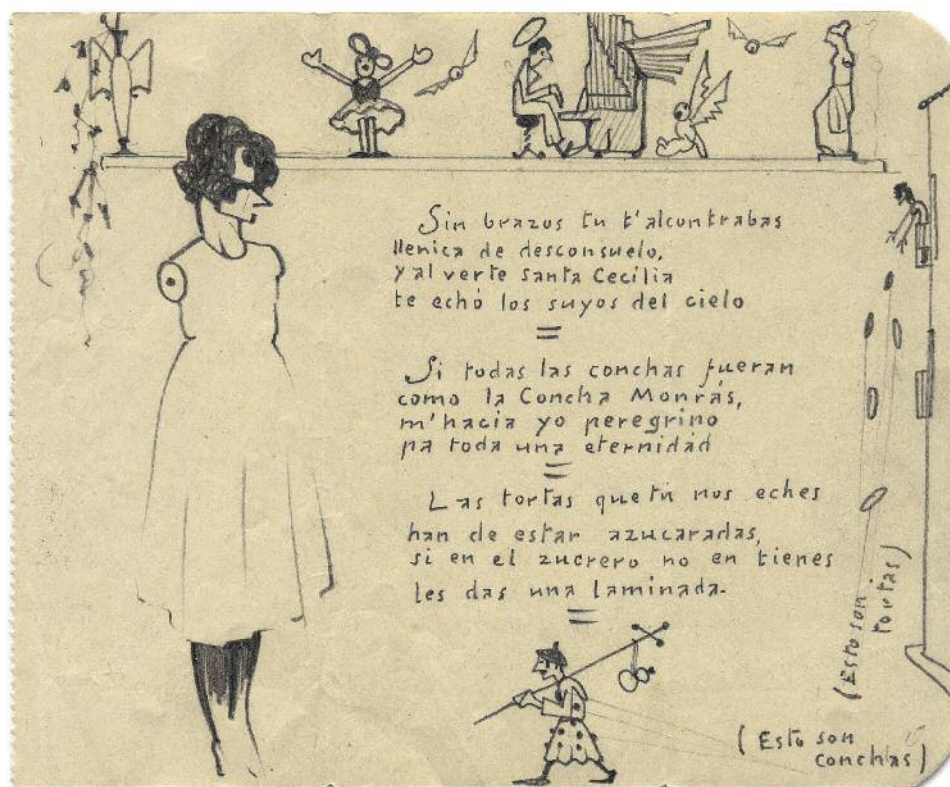 Sin brazos tu t'alcontrabas
llenica de desconsuelo,
y al verte santa Cecilia
te echó los suyos del cielo
=
Si todas las conchas fueran
como la Concha Monrás,
m'hacia yo peregrino
pa toda una eternidad
=
Las tortas que tú nos eches
han de estar azucaradas,
si en el zucrero no en tienes
les das una laminada.
=
(Esto son
tortas)
(Esto son
conchas)